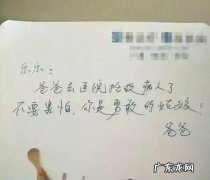 乐乐:
爸爸去医院抢救病人了
不要害怕,你是勇敢的姑娘!
爸爸
广东龙网